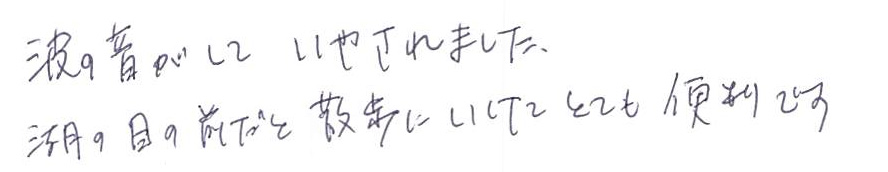 波の音がして いやされました、
湖の目の前だと散歩にいけてとても便利です